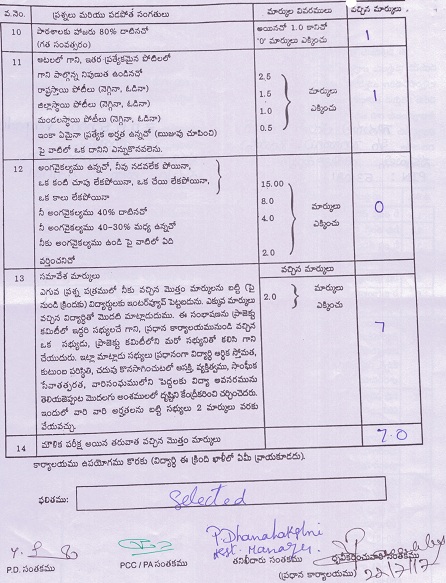 వ.నెం. ప్రశ్నలు మరియు పడపోత సంగతులు మార్కుల వివరములు వచ్చిన మార్కులు
10 పాఠశాలకు హాజరు 80% దాటినచో అయినచో 1.0 కానిచో 1
(గత సంవత్సరం) '0' మార్కులు ఎక్కించు
11 ఆటలలో గాని, ఇతర ప్రత్యేకమైన పోటిలలో
గాని పాల్గొన్న నిపుణత ఉండినచో 2.5
రాష్ట్రస్థాయి పోటీలు (నెగ్గినా, ఓడినా) 1.5 మార్కులు 1
జిల్లాస్థాయి పోటీలు (నెగ్గినా, ఓడినా) 1.0 ఎక్కించు
మండలస్థాయి పోటీలు (నెగ్గినా, ఓడినా) 0.5
ఇంకా ఏమైనా ప్రత్యేక అర్హత ఉన్నచో (ఋజువు చూపించి)
పై వాటిలో ఒక దానిని ఎన్నుకొనవలెను.
12 అంగవైకల్యము ఉన్నచో, నీవు నడవలేక పోయినా,
ఒక కంటి చూపు లేకపోయినా, ఒక చేయి లేకపోయినా, 15.00
ఒక కాలు లేకపోయినా 8.0 మార్కులు 0
నీ అంగవైకల్యము 40% దాటినచో 4.0 ఎక్కించు
నీ అంగవైకల్యము 40-30% మధ్య ఉన్నచో
నీకు అంగవైకల్యము ఉండి పై వాటిలో ఏది 2.0
వర్తించనిచో
13 సమావేశ మార్కులు వచ్చిన మార్కులు
ఎగువ ప్రశ్న పత్రములో నీకు వచ్చిన మొత్తం మార్కులను బట్టి (పై
నుండి క్రిందకు) విద్యార్థులకు ఇంటర్వ్యూవ్ పెట్టబడును. ఎక్కువ మార్కులు 2.0 మార్కులు
వచ్చిన విద్యార్థితో మొదటి మాట్లాడుదురు. ఈ సంభాషణను ప్రాజెక్టు ఎక్కించు
కమిటీలో ఇద్దరి సభ్యులచే గాని, ప్రధాన కార్యాలయమునుండి వచ్చిన 7
ఒక సభ్యుడు, ప్రాజెక్టు కమిటీలోని మరో సభ్యునితో కలిసి గాని
చేయుదురు. ఇట్లా మాట్లాడు సభ్యులు ప్రధానంగా విద్యార్థి ఆర్థిక స్తోమత,
కుటుంబ పరిస్థితి, చదువు కొనసాగించుటలో ఆసక్తి, వ్యక్తిత్వము, సాంఘిక
సేవాతత్పరత, వారిసంఘములోని పెద్దలకు విద్యా అవసరమును
తెలియజెప్పుట మొదలగు అంశములలో దృష్టిని కేంద్రీకరించి చర్చించెదరు.
ఇందులో వారి వారి అర్హతలను బట్టి సభ్యులు 2 మార్కులు వరకు
వేయవచ్చు.
14 మౌఖిక పరీక్ష అయిన తరువాత వచ్చిన మొత్తం మార్కులు 7.0
కార్యాలయము ఉపయోగము కొరకు (విద్యార్థి ఈ క్రింది ఖాళీలో ఏమీ వ్రాయకూడదు).
ఫలితము: Selected
P. Dhanalakshmi
Asst. Manager
P.D. సంతకము PCC / PA సంతకము తనిఖీదారు సంతకము ధృవీకరించువారి సంతకము
(ప్రధాన కార్యాలయము) 22/7/17